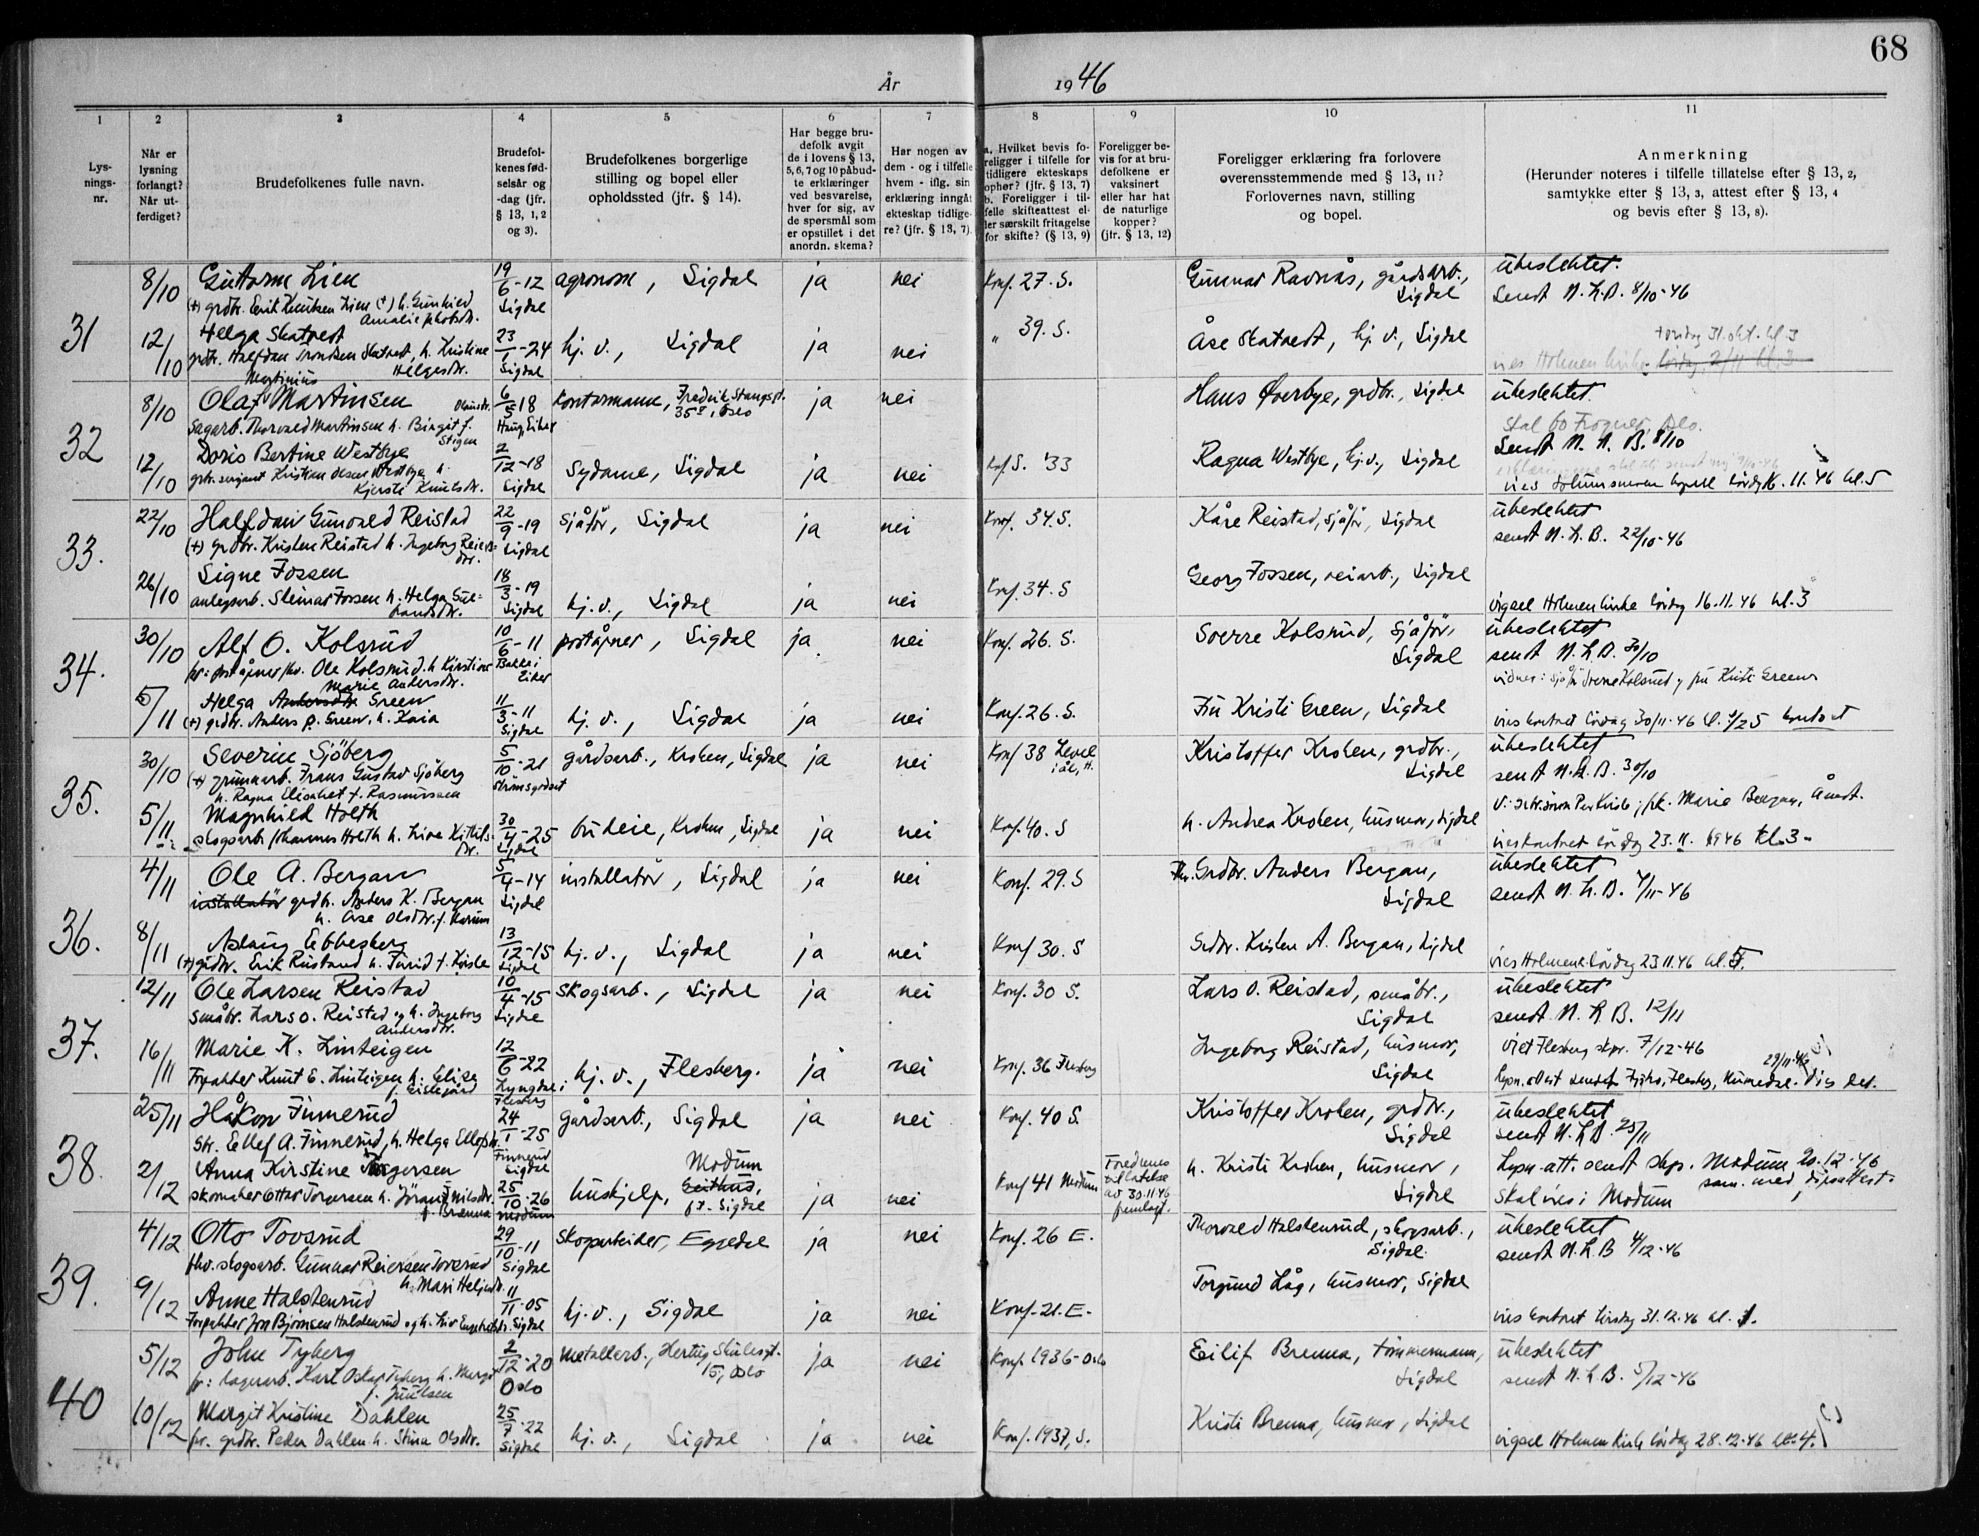 68
År 1946
1
Lys-
nings-
nr.
2
Når er
lysning
forlangt?
Når ut-
ferdiget?
3
Brudefolkenes fulle navn.
4
Brudefol-
kenes fød-
selsår og
-dag (jfr.
§ 13, 1, 2
og 3).
5
Brudefolkenes borgerlige
stilling og bopel eller
opholdssted (jfr. § 14).
6
Har begge bru-
defolk avgit
de i lovens § 13,
5, 6, 7 og 10 påbud-
te erklæringer
ved besvarelse,
hver for sig, av
de spørsmål som
er opstillet i det
anordn. skema?
7
Har nogen av
dem - og i tilfelle
hvem - iflg. sin
erklæring inngåt
ekteskap tidlige-
re? (jfr. § 13, 7)
8
a. Hvilket bevis fo-
religger i tilfelle for
tidligere ekteskaps
ophør? (jfr. § 13, 7)
b. Foreligger i til-
felle skifteattest el-
ler særskilt fritagelse
for skifte? (§ 13, 9)
9
Foreligger be-
vis for at bru-
defolkene er
vaksinert
eller har hat
de naturlige
kopper?
(jfr. § 13, 12)
10
Foreligger erklæring fra forlovere
overensstemmende med § 13, 11?
Forlovernes navn, stilling
og bopel.
11
Anmerkning
(Herunder noteres i tilfelle tillatelse efter § 13, 2,
samtykke etter § 13, 3, attest efter § 13, 4
og bevis efter § 13, 8).
31
8/10 Guttorm Lien 19/6-12 Sigdal agronom, Sigdal ja nei Konf. 27. S. Gunnar Ravnås, gårdsarb., Sigdal ubeslektet.
(+) grdbr. Erik Knutsen Lien (+) h. Gunhild
Sendt N.L.B. 8/10-46
12/10 Helga Skatvedt 23/1-24 Sigdal hj.v., Sigdal ja nei " 39. S. Åse Skatvedt, hj.v., Sigdal
torsdag 31. okt. kl. 3
grdbr. Halfdan Trondsen Skatvedt, h. Kristine Helgesdtr.
vies Holmen kirke lördag 2/11 kl. 3
32
8/10 Olaf Martinius Martinsen 6/5 18 kontormann, Fredrik Stangsgt. 35, Oslo ja nei Hans Överbye, grdbr., Sigdal ubeslektet
sagarb. Thorvald Martinsen h. Birgit f. Stigen
Skal bo Frogner, Oslo.
Sendt N.L.B. 8/10
12/10 Doris Bertine Westbye 2/12-18 Sigdal Sydame, Sigdal ja nei Konf S. '33 Ragna Westbye, hj.v., Sigdal
Kjersti Knutsdtr.
lördag 16.11.46 kl. 5
33.
22/10 Halfdan Gunvald Reistad 22/9-19 Sigdal sjåför, Sigdal ja nei Konf. 34. S. Kåre Reistad, sjåför, Sigdal ubeslektet
(+) grdbr. Kristen Reistad h. Ingeborg Reiersdtr.
sendt N.L.B. 22/10-46
26/10 Signe Fossen 18/3-19 Sigdal hj.v., Sigdal ja nei Konf. 34. S Georg Fossen, veiarb., Sigdal
anlegsarb. Steinar Fossen h. Helga
vigsel Holmen kirke lördag 16.11.46 kl. 3
34.
30/10 Alf O. Kolsrud 10/6-11 Bakke i Eiker poståpner, Sigdal ja nei Konf. 26. S. Sverre Kolsrud, Sjåför, Sigdal ubeslektet
for: poståpner fhv. Ole Kolsrud h. Kirstine Marie Andersdtr.
sendt N.L.B. 30/10
vidner: sjåför Sverre Kolsrud og fru Kristi Green
5/11 Helga Andersdtr Green 11/3-11 Sigdal hj.v., Sigdal ja nei Konf. 26. S. Fru Kristi Green, Sigdal
(+) grdbr. Anders P. Green, h. Kaia
vies kontoret lördag 30/11-46 kl. kontoret
35.
30/10 Severin Sjöberg 5/10-21 Strömsgodset gårdsarb., Kroken, Sigdal ja nei Konf 38 Kristoffer Kroken, grdbr., Sigdal ubeslektet
(+) grunnarb. Frans Gustav Sjöberg
h. Ragna Elisabet f. Rasmussen
sendt N.L.B. 30/10
5/11 Magnhild Holth 30/4-25 Sigdal budeie, Kroken, Sigdal ja nei Konf. 40. S h. Andrea Kroken, husmor, Sigdal
skogsarb. Johannes Holth h. Live
vies kontoret lördag 23.11.1946 kl. 3-
36.
4/11 Ole A. Bergan 5/4-14 Sigdal installatör, Sigdal ja nei Konf. 29. S Grdbr. Anders Bergan, Sigdal ubeslektet
installatör grdbr. Anders K. Bergan
h. Åse Olsdtr. f. Horum
sendt N.L.B. 4/11-46
8/11 Aslaug Ebbesberg 13/12-15 Sigdal hj.v., Sigdal ja nei Konf. 30. S Grdbr. Kristen A. Bergan, Sigdal
(+) grdbr. Erik Rustand h. Turid
vies Holmen k. lördag 23.11.46 kl. 5.
37.
12/11 Ole Larsen Reistad 10/4-15 Sigdal skogsarb., Sigdal ja nei Konf. 30 S. Lars O. Reistad, småbr., Sigdal ubeslektet
småbr. Lars O. Reistad og h. Ingeborg Andersdtr.
sendt N.L.B. 12/11
16/11 Marie K. Linteigen 12/6-22 Lyngdal i Flesberg hj.v., Flesberg. ja nei Konf. 36 Flesberg Ingeborg Reistad, husmor, Sigdal
viet Flesberg 7/12-46
Forpakter Knut E. Linteigen h. Elise
29/11-46
38.
25/11 Håkon Finnerud 24/1-25 Finnerud Sigdal gårdsarb., Sigdal ja nei Konf. 40 S. Kristoffer Kroken, grdbr., Sigdal ubeslektet
gbr. Ellef A. Finnerud, h. Helga Ellefsdtr.
sendt N.L.B. 25/11
2/12 Anna Kirstine Torgersen 25/10-26 Modum hushjelp, Geithus, Modum p.t. Sigdal ja nei Konf 41 Modum Foreldrenes tillatelse av 30.11.46 fremlagt. h. Kristi Kroken, husmor, Sigdal
skomaker Ottar Torgersen h. Jörand Nilsdtr. f. Brenna
lysn.att. sendt skpr. Modum 20.12-46
skal vies i Modum
39.
4/12 Otto Tovsrud 29/10-11 Sigdal skogarbeider, Eggedal ja nei Konf. 26 E. Thorvald Halstenrud, skogsarb., Sigdal ubeslektet
fhv. skogsarb. Gunnar Reiersen Tovsrud
sendt N.L.B 4/12-46
9/12 Anne Halstenrud 11/11-05 Sigdal hj.v., Sigdal ja nei Konf. 21. E. Torgund Låg, husmor, Sigdal
Forpakter Jon Bjørnsen Halstenrud og h.
vies kontoret tirsdag 31.12.46 kl. 1.
40
5/12 John Tyberg 2/12-20 Oslo metallarb., Hertug Skulesgt. 15, Oslo ja nei Konf. 1936-Oslo Eilif Brenna, tömmermann, Sigdal ubeslektet
for: lagerarb. Karl Oskar Tyberg h. Margit f. Juulsen
sendt N.L.B. 5/12-46
10/12 Margit Kristine Dahlen 25/7-22 Sigdal hj.v., Sigdal ja nei Konf. 1937, S. Kristi Brenna, husmor, Sigdal
for. grdbr. Peder Dahlen h. Stina Olsdtr.
vigsel Holmen kirke lördag 28.12-46 kl. 4.